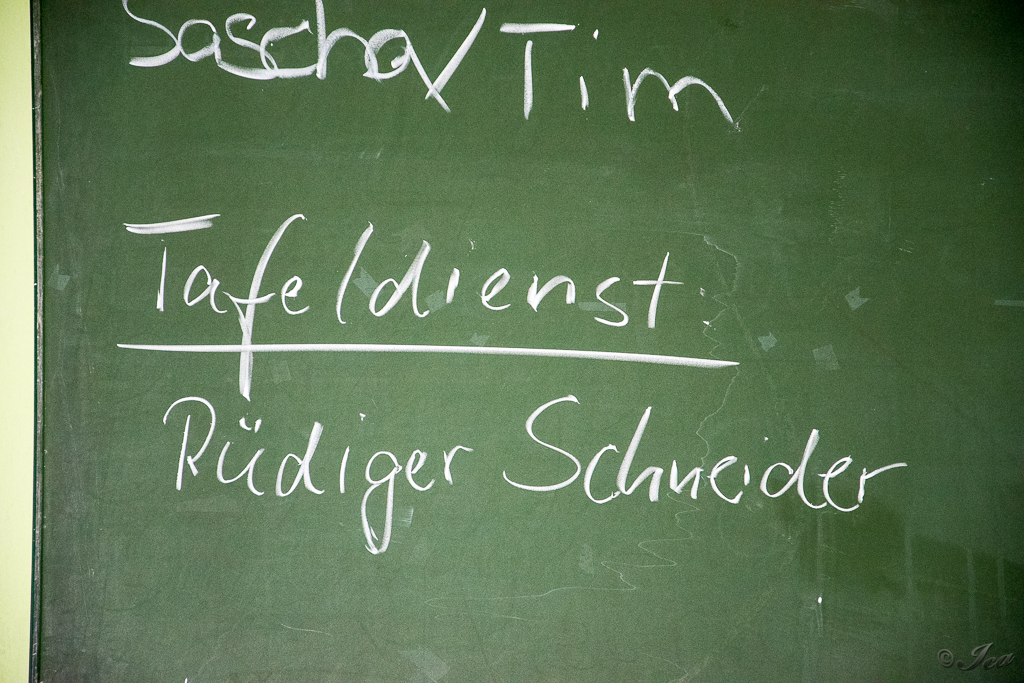 Sascha/Tim
Tafeldienst
Rüdiger Schneider